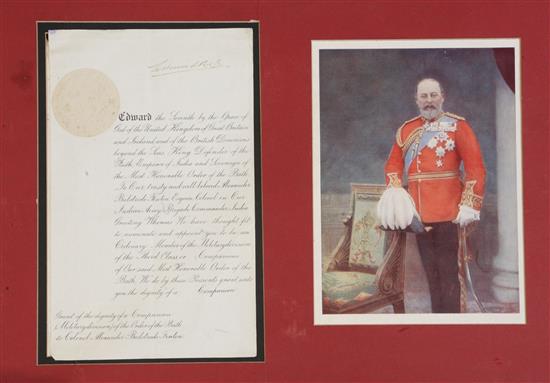 Edward R & I
Edward the Seventh by the Grace of
God of the United Kingdom of Great Britain
and Ireland and of the British Dominions
beyond the Seas King Defender of the
Faith, Emperor of India and Sovereign of
the Most Honorable Order of the Bath
To Our trusty and well beloved Alexander
Esquire Colonel in Our
Indian Army Brigade Commander India
Greeting Whereas We have thought fit
to nominate and appoint you to be an
Ordinary Member of the Military division
of the Third Class or Companions
of Our said Most Honorable Order of the
Bath We do by these Presents grant unto
you the dignity of a Companion
Grant of the dignity of a Companion
(Military division) of the Order of the Bath
to Colonel Alexander